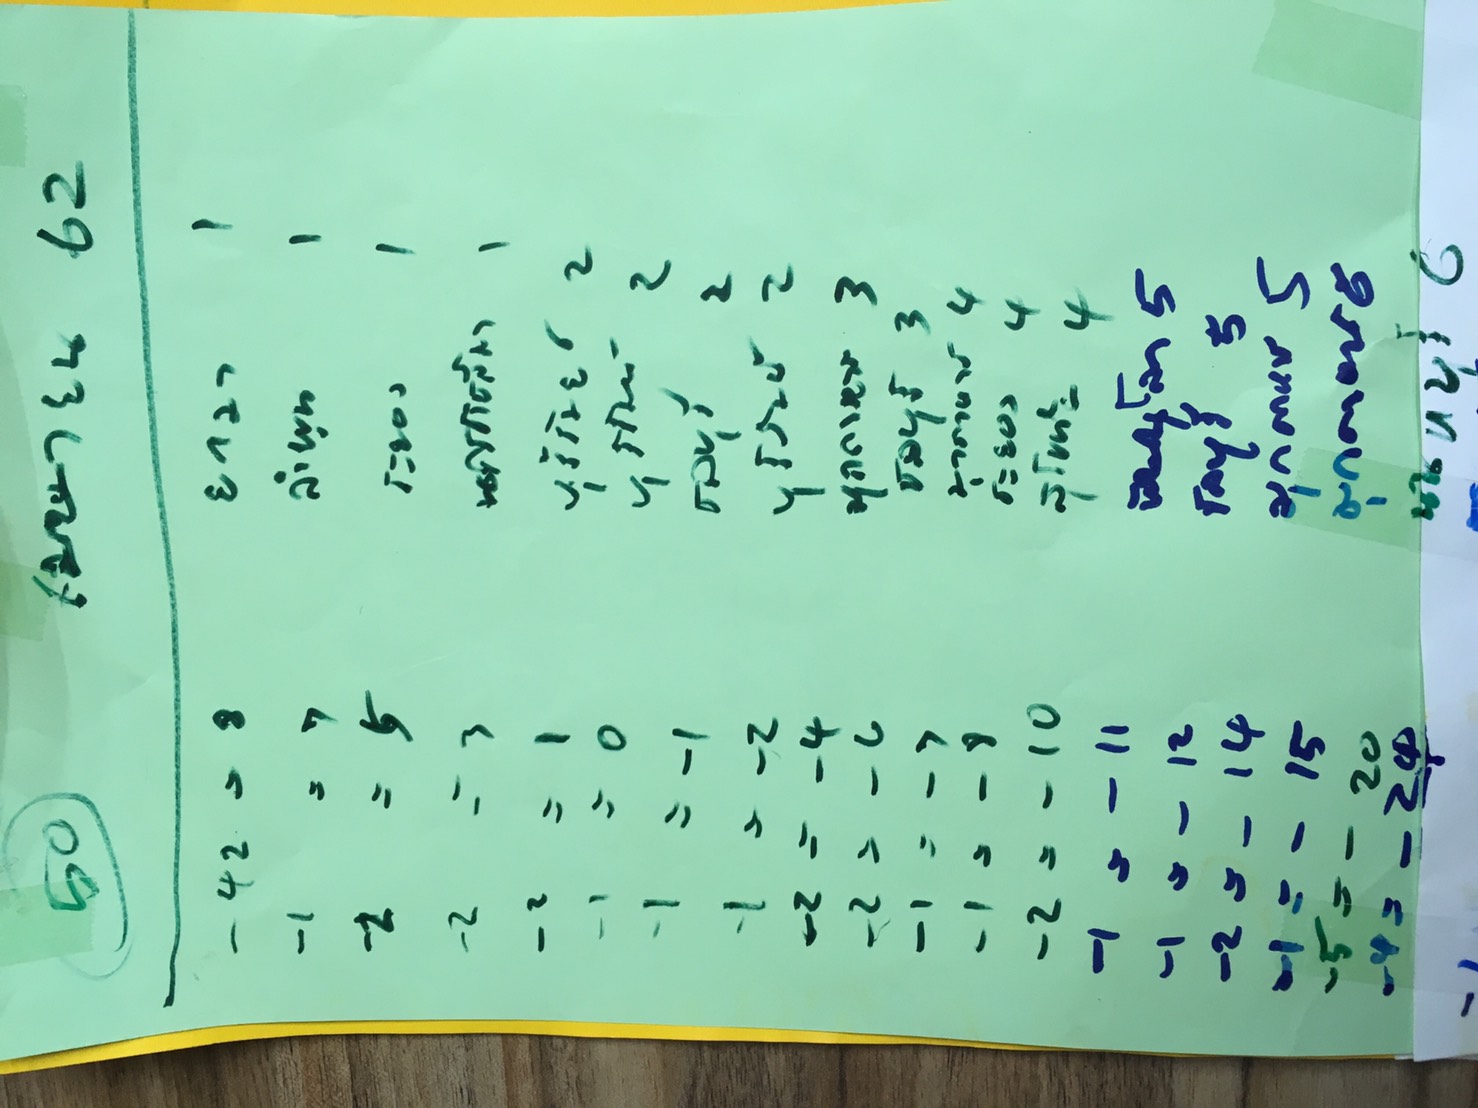 50 เมษายน 62
-42 = 8 ยะลา 1
-1 = 7 ลำพูน 1
-2 = 5 ระยอง 1
-2 = 3 นครราชสีมา 1
-2 = 1 บุรีรัมย์ 2
-1 = 0 บุรีรัมย์ 2
-1 = -1 ชลบุรี 2
-1 = -2 บุรีรัมย์ 2
-2 = -4 มุกดาหาร 3
-2 = -6 ชลบุรี 3
-1 = -7 มุกดาหาร 4
-1 = -8 ระยอง 4
-2 = -10 สุโขทัย 4
-1 = -11 พิษณุโลก 5
-1 = -12 ชลบุรี 5
-2 = -14 มุกดาหาร 5
-1 = -15 มุกดาหาร 6
-5 = -20 นนทบุรี 6
-4 = -24